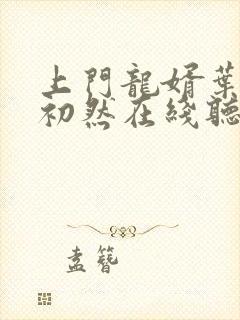 上門龍婿葉
初然在綫聽
盍簪